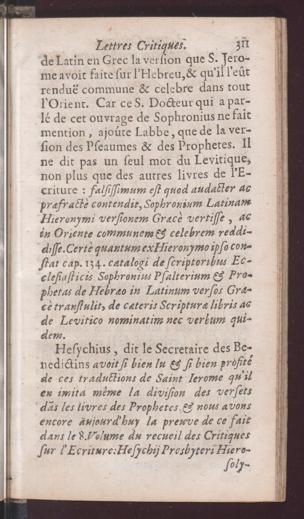 Lettres Critiques. 311
de Latin en Grec la version que S. Jero-
me avoit faite sur l'Hebreu, & qu'il l'eût
renduë commune & celebre dans tout
l'Orient. Car ce S. Docteur qui a par-
lé de cet ouvrage de Sophronius ne fait
mention, ajoûte Labbe, que de la ver-
sion des Pseaumes & des Prophetes. Il
ne dit pas un seul mot du Levitique,
non plus que des autres livres de l'E-
criture : falsissimum est quod audacter ac
præfractè contendit, Sophronium Latinam
Hieronymi versionem Græcè vertisse, ac
in Oriente communem & celebrem reddi-
disse. Certè quantum ex Hieronymo ipso con-
stat cap. 134. catalogi de scriptoribus Ec-
clesiasticis Sophronius Psalterium & Pro-
phetas de Hebræo in Latinum versos Græ-
cè transtulit, de cæteris Scripturæ libris ac
de Levitico nominatim nec verbum qui-
dem.
Hesychius, dit le Secretaire des Be-
nedictins avoit si bien lu & si bien profité
de ces traductions de Saint Jerome qu'il
en imita même la division des versets
dãs les livres des Prophetes & nous avons
encore aujourd'huy la preuve de ce fait
dans le 8. Volume du recueil des Critiques
sur l'Ecriture: Hesychij Presbyteri Hiero-
soly-